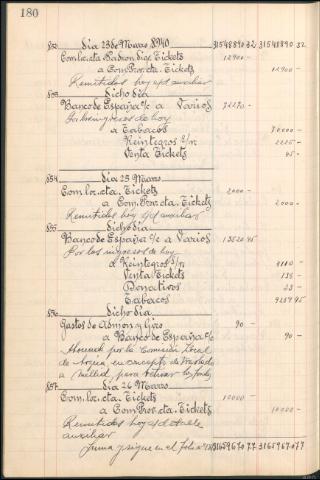 180
852 Dia 23 de Marzo 1940 31548890 32 31548890 32
Com. loc. cta. Tickets 12900 -
a Com Prov. cta. Tickets 12900 -
Remitidos hoy s/d auxiliar
853 Dicho dia
Banco de España c/c a Varios
Por los ingresos de hoy
a Tabacos
Reintegros s/n 2225 -
Venta Tickets 45 -
854 Dia 25 Marzo
Com. loc. cta. Tickets 2000 -
a Com. Prov. cta. Tickets 2000 -
Remitidos hoy s/d auxiliar
855 Dicho dia
Banco de España c/c a Varios 13520 45
Por los ingresos de hoy
a Reintegros s/n
Venta Tickets 135 -
Donativos 23 -
Tabacos
856 Dicho dia
Gastos de Admon y Giro 90 -
a Banco de España c/c 90 -
por la Comisión Local
de en concepto de traslado
a Melilla para retirar los fondos
857 Dia 26 Marzo
Com. loc. cta. Tickets 10000 -
a Com Prov. cta. Tickets 10000 -
Remitidos hoy s/d
auxiliar
Suma y sigue en el folio 181 31659670 77 31659670 77